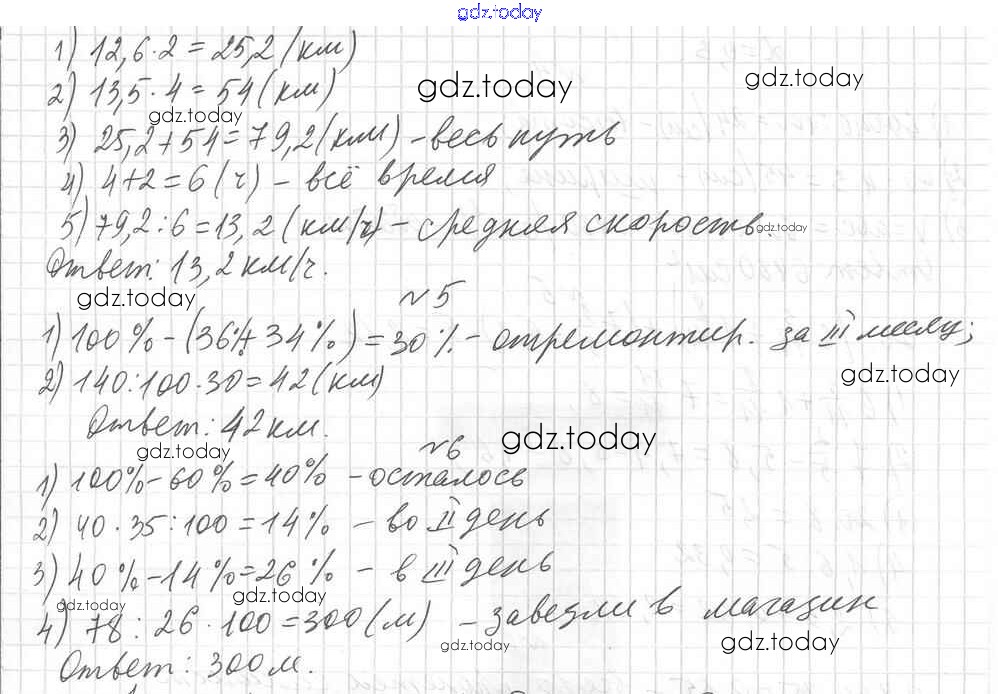 gdz.today
1) 12,6·2 = 25,2 (км)
gdz.today
2) 13,5·4 = 54 (км)
gdz.today
gdz.today
3) 25,2+54=79,2 (км) - весь путь
4) 4+2=6 (ч) - всё время
5) 79,2:6=13,2 (км/ч) - средняя скорость.
gdz.today
Ответ: 13,2 км/ч.
gdz.today
№5
1) 100% - (36%+34%) = 30% - отремонтир. за III месяц;
2) 140:100·30=42 (км)
gdz.today
Ответ: 42 км.
gdz.today
gdz.today
№6
1) 100% - 60% = 40% - осталось
2) 40·35:100=14% - во II день
3) 40% - 14% = 26% - в III день
gdz.today
gdz.today
4) 78:26·100=300 (м) - завезли в магазин
gdz.today
gdz.today
Ответ: 300 м.